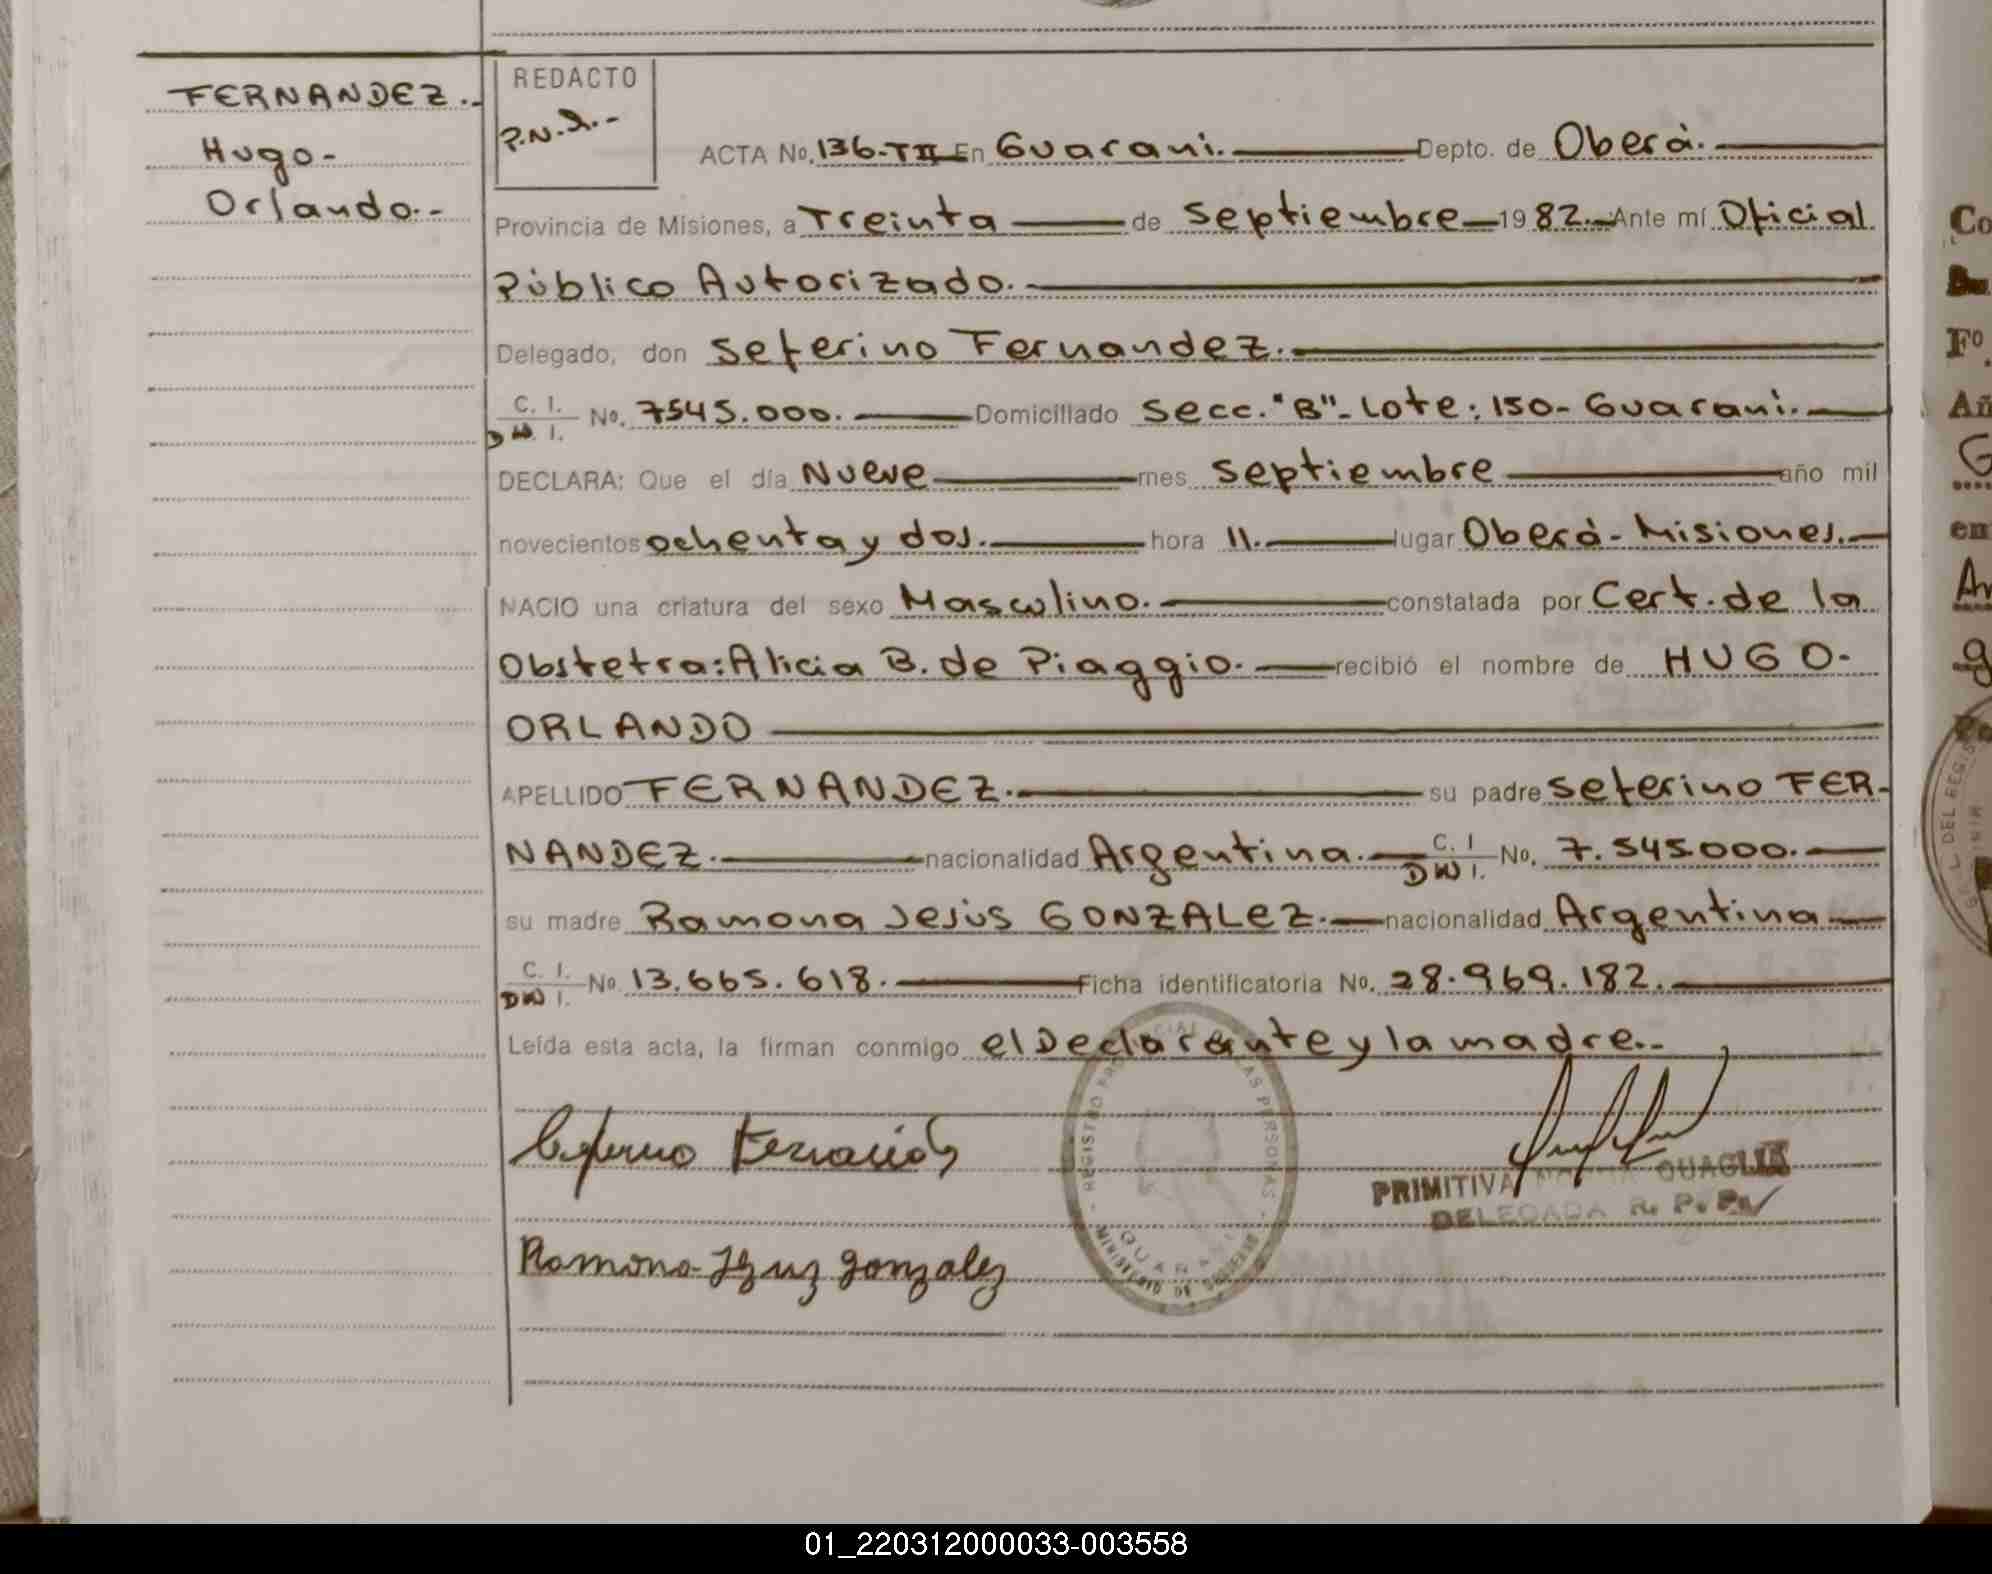 FERNANDEZ.-
Hugo-
Orlando.-
REDACTO
P.N.Q.-
ACTA No. 136-TII En Guarani. Depto. de Oberá.
Provincia de Misiones, a Treinta de Septiembre 1982.- Ante mí Oficial
Público Autorizado.
Delegado, don Seferino Fernandez.
C. I. D N I. No. 7545.000. Domiciliado Secc. "B"- Lote: 150- Guarani.
DECLARA: Que el día Nueve mes Septiembre año mil
novecientos ochenta y dos. hora 11. lugar Oberá- Misiones.
NACIO una criatura del sexo Masculino. constatada por Cert. de la
Obstetra: Alicia B. de Piaggio. recibió el nombre de HUGO-
ORLANDO
APELLIDO FERNANDEZ. su padre Seferino FER-
NANDEZ. nacionalidad Argentina. C. I D N I. No. 7.545.000.
su madre Ramona Jesús GONZALEZ. nacionalidad Argentina
C. I. D N I. No 13.665.618. Ficha identificatoria No. 28.969.182.
Leída esta acta, la firman conmigo el Declarante y la madre.-
PRIMITIVA QUAGLIA
DELEGADA R. P. P.
REGISTRO PROVINCIAL DE LAS PERSONAS - MINISTERIO DE GOBIERNO
GUARANI
Ramona Jzuz gonzalez
Co
Fº
Añ
G
en
An
g
01_220312000033-003558